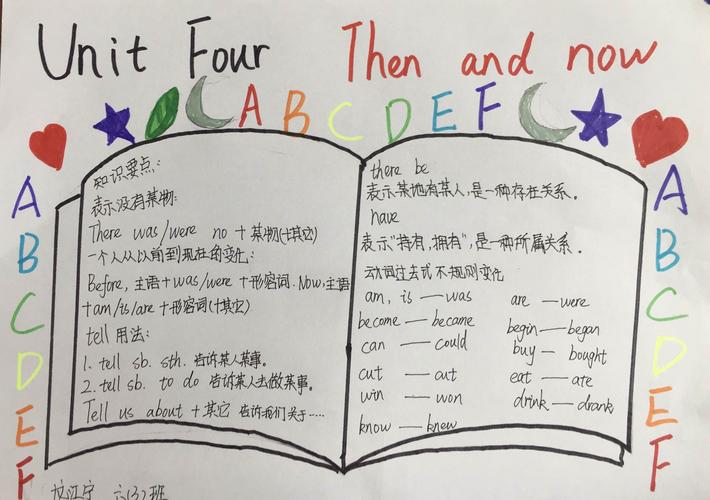 Unit Four Then and now
A B C D E F
A
B
C
D
E
F
知识要点:
表示没有某物:
There was/were no + 某物(+其它)
一个人从以前到现在的变化:
Before, 主语+was/were +形容词. Now, 主语
+am/is/are +形容词(+其它)
tell 用法:
1. tell sb. sth. 告诉某人某事。
2. tell sb. to do 告诉某人去做某事。
Tell us about +其它 告诉我们关于……
there be
表示某地有某人,是一种存在关系。
have
表示"持有,拥有",是一种所属关系。
动词过去式不规则变化
am, is —was are —were
become — became begin—began
can — could buy — bought
cut — cut eat — ate
win — won drink—drank
know — knew
A
B
C
D
E
F
六(3)班